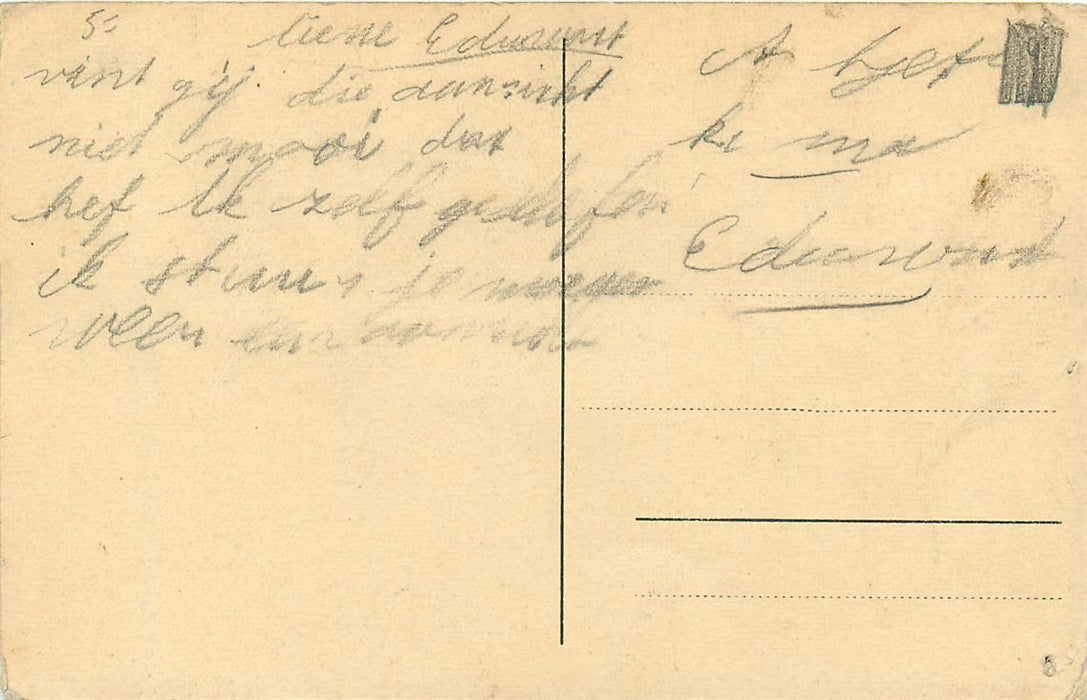 5-
liene Eduwart
vint gij die aansicht
niet mooi dat
hef ik zelf
ik stuur je morgen
weer een
A
ki ma
Eduward
8